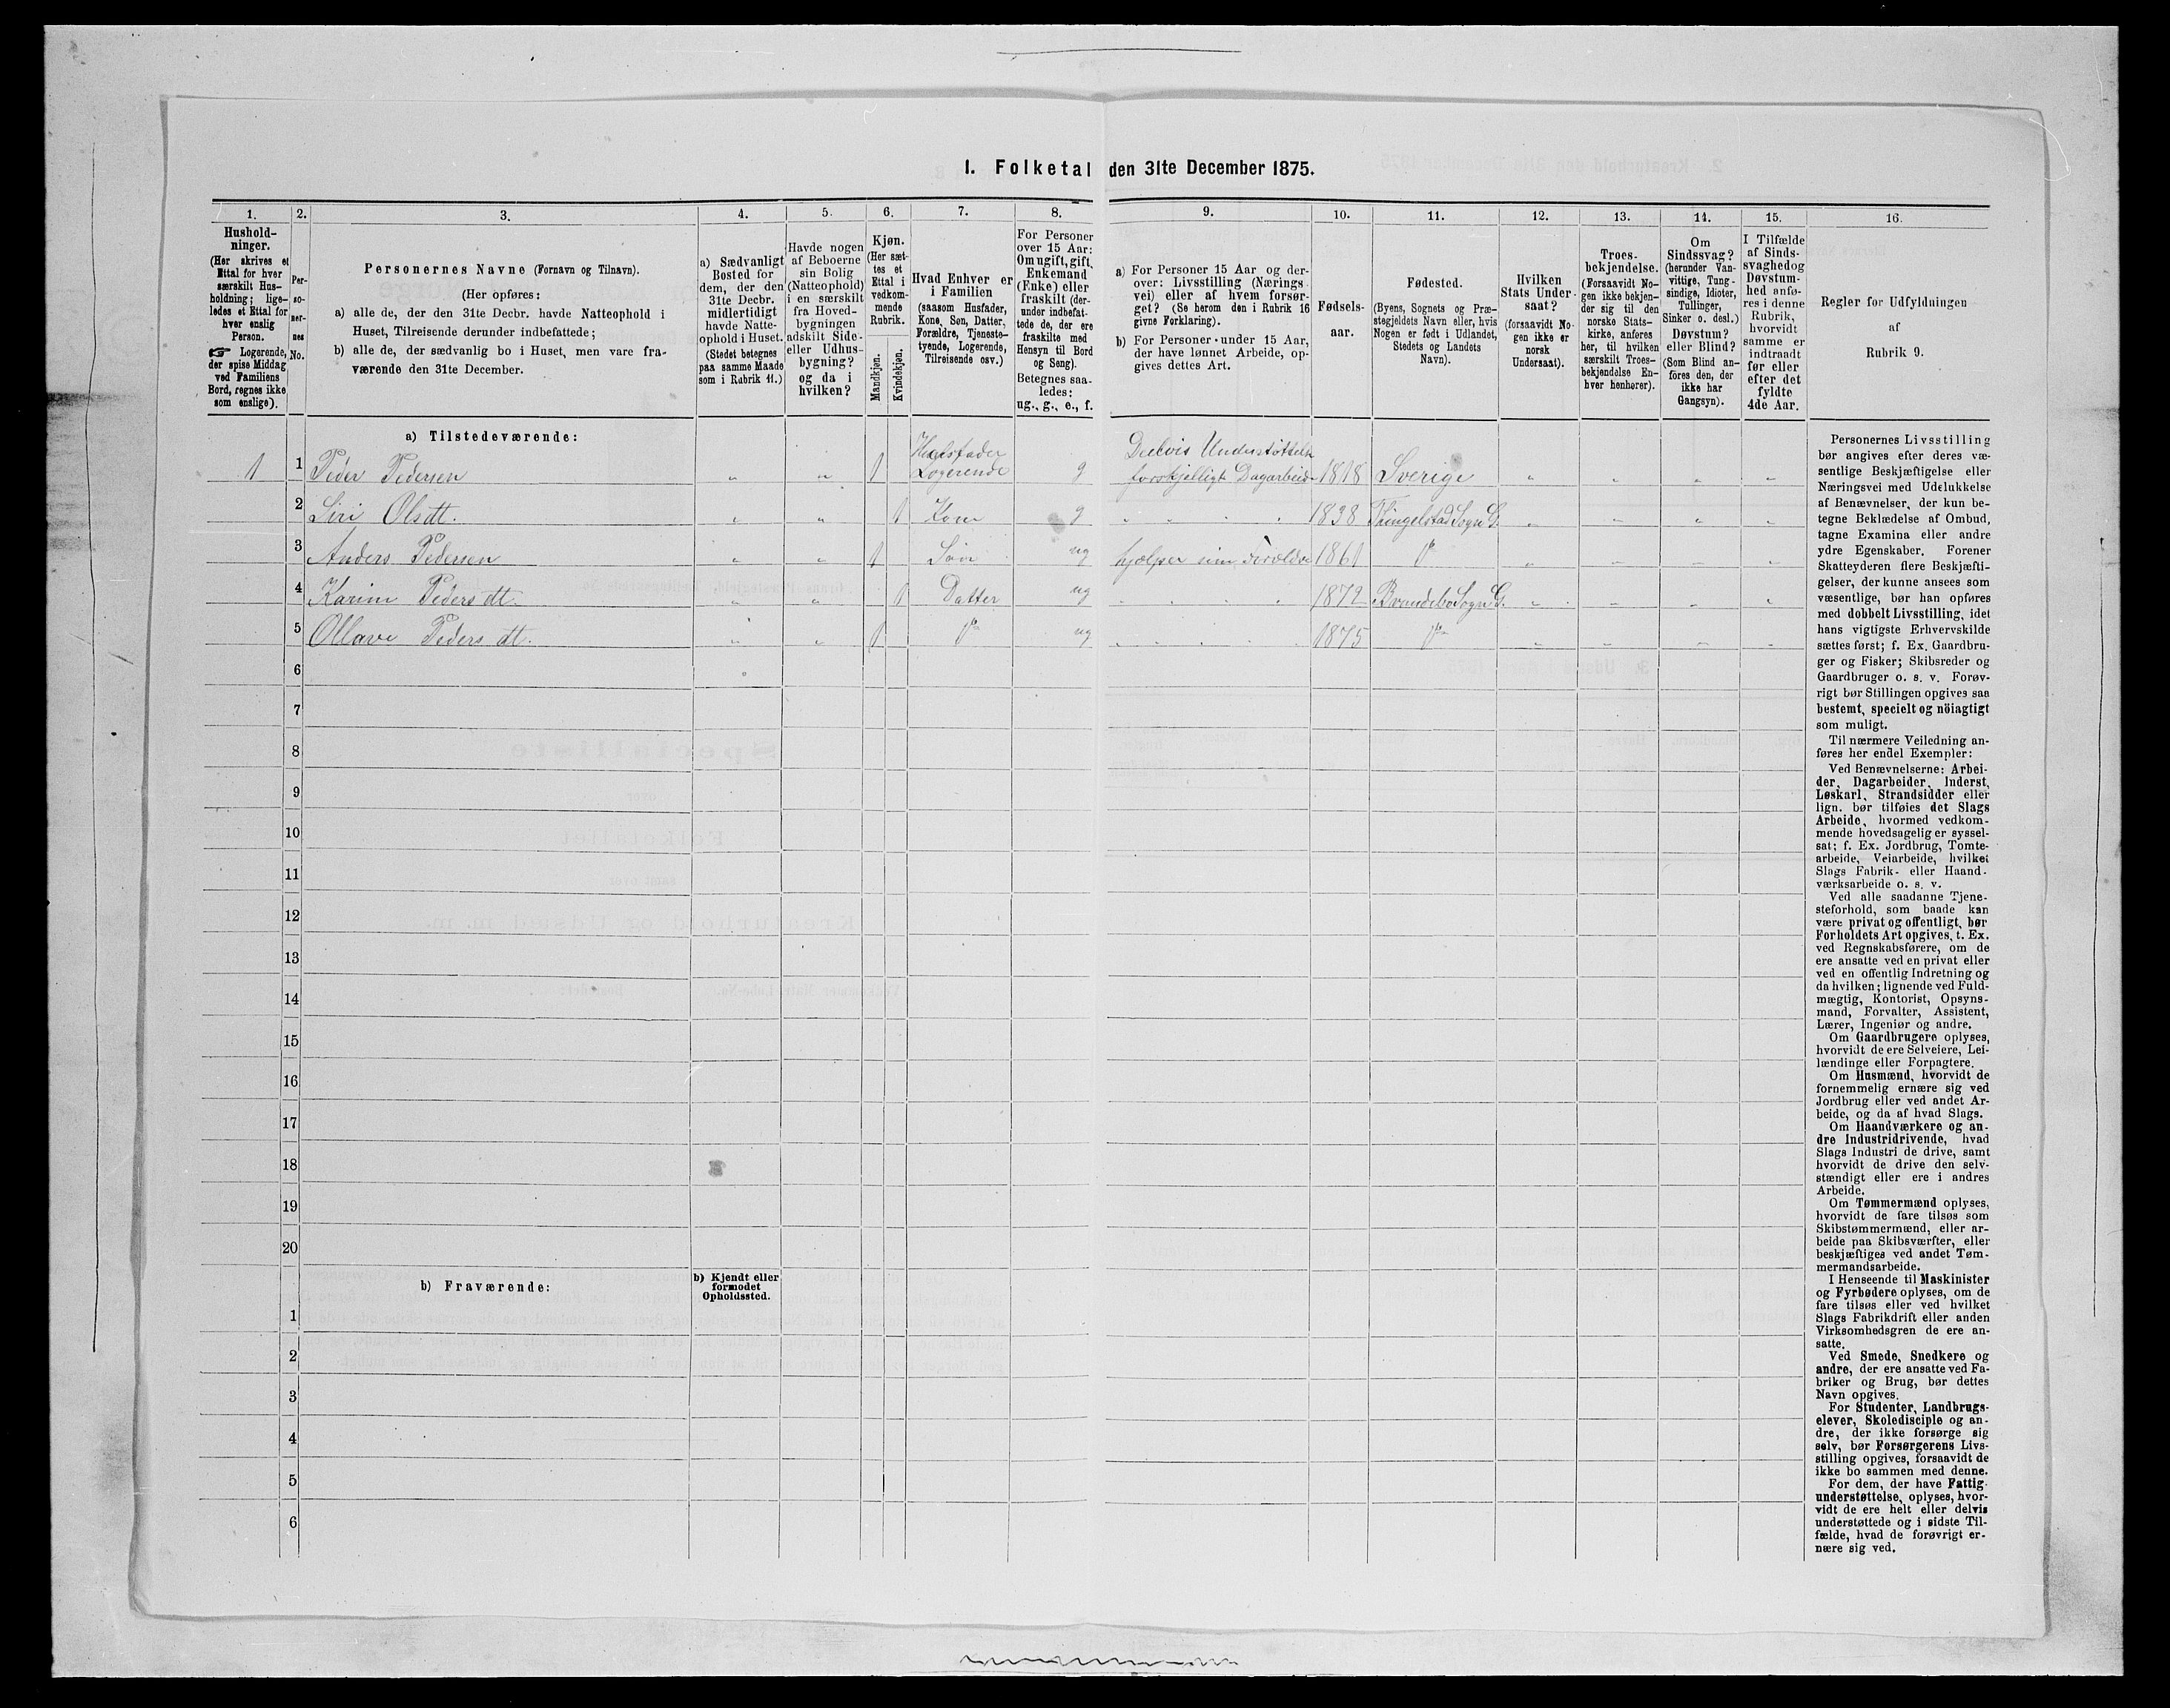 I. Folketal den 31te December 1875.
1.
Hushold-
ninger.
(Her skrives et
Ettal for hver
særskilt Hus-
holdning; lige-
ledes et Ettal for
hver enslig
Person.
☞ Logerende,
der spise Middag
ved Familiens
Bord, regnes ikke
som enslige).
2.
Per-
so-
ner-
nes
No.
3.
Personernes Navne (Fornavn og Tilnavn).
(Her opføres:
a) alle de, der den 31te Decbr. havde Natteophold i
Huset, Tilreisende derunder indbefattede;
b) alle de, der sædvanlig bo i Huset, men vare fra-
værende den 31te December.
4.
a) Sædvanligt
Bosted for
dem, der den
31te Decbr.
midlertidigt
havde Natte-
ophold i Huset.
(Stedet betegnes
paa samme Maade
som i Rubrik 11.)
5.
Havde nogen
af Beboerne
sin Bolig
(Natteophold)
i en særskilt
fra Hoved-
bygningen
adskilt Side-
eller Udhus-
bygning?
og da i
hvilken?
6.
Kjøn.
(Her sæt-
tes et
Ettal i
vedkom-
mende
Rubrik.
Mandkjøn.
Kvindekjøn.
7.
Hvad Enhver er
i Familien
(saasom Husfader,
Kone, Søn, Datter,
Forældre, Tjeneste-
tyende, Logerende,
Tilreisende osv.)
8.
For Personer
over 15 Aar:
Om ugift, gift,
Enkemand
(Enke) eller
fraskilt (der-
under indbefat-
tede de, der ere
fraskilte med
Hensyn til Bord
og Seng).
Betegnes saa-
ledes:
ug., g., e., f.
9.
a) For Personer 15 Aar og der-
over: Livsstilling (Nærings
vei) eller af hvem forsør-
get? (Se herom den i Rubrik 16
givne Forklaring).
b) For Personer under 15 Aar,
der have lønnet Arbeide, op-
gives dettes Art.
10.
Fødsels-
aar.
11.
Fødested.
(Byens, Sognets og Præ-
stegjeldets Navn eller, hvis
Nogen er født i Udlandet,
Stedets og Landets
Navn).
12.
Hvilken
Stats Under-
saat?
(forsaavidt No-
gen ikke er
norsk
Undersaat).
13.
Troes-
bekjendelse.
(Forsaavidt No-
gen ikke bekjen-
der sig til den
norske Stats-
kirke, anføres
her, til hvilken
særskilt Troes-
bekjendelse En-
hver henhører).
14.
Om
Sindssvag?
(herunder Van-
vittige, Tung-
sindige, Idioter,
Tullinger,
Sinker o. desl.)
Døvstum?
eller Blind?
(Som Blind an-
føres den, der
ikke har
Gangsyn).
15.
I Tilfælde
af Sinds-
svaghed og
Døvstum-
hed anfø-
res i denne
Rubrik,
hvorvidt
samme er
indtraadt
før eller
efter det
fyldte
4de Aar.
16.
Regler for Udfyldningen
af
Rubrik 9.
a) Tilstedeværende:
1 1 Peder Pedersen " " 1 Husfader Logerende g Deelvis Understöttelse forskjelligt Dagarbeide 1818 Sverige " " " "
2 Siri Olsdt. " " 1 Kone g " " " " 1838 Thingelstad Sogn G. " " " "
3 Anders Pedersen " " 1 Søn ug hjælper sine Forældre 1861 Do " " " "
4 Karine Pedersdt. " " 1 Datter ug " " " " 1872 Brandebo Sogn G. " " " "
5 Ollave Pedersdt. " " 1 Do ug " " " " 1875 Do " " " "
6 "
7
8
9
10
11
12
13
14
15
16
17
18
19
20
b) Fraværende:
b) Kjendt eller
formodet
Opholdssted.
1
2
3
4
5
6
Personernes Livsstilling
bør angives efter deres væ-
sentlige Beskjæftigelse eller
Næringsvei med Udelukkelse
af Benævnelser, der kun be-
tegne Beklædelse af Ombud,
tagne Examina eller andre
ydre Egenskaber. Forener
Skatteyderen flere Beskjæfti-
gelser, der kunne ansees som
væsentlige, bør han opføres
med dobbelt Livsstilling, idet
hans vigtigste Erhvervskilde
sættes først; f. Ex. Gaardbru-
ger og Fisker; Skibsreder og
Gaardbruger o. s. v. Forøv-
rigt bør Stillingen opgives saa
bestemt, specielt og nöiagtigt
som muligt.
Til nærmere Veiledning an-
føres her endel Exempler:
Ved Benævnelserne: Arbei-
der, Dagarbeider, Inderst,
Løskarl, Strandsidder eller
lign. bør tilføies det Slags
Arbeide, hvormed vedkom-
mende hovedsagelig er syssel-
sat; f. Ex. Jordbrug, Tomte-
arbeide, Veiarbeide, hvilket
Slags Fabrik- eller Haand-
værksarbeide o. s. v.
Ved alle saadanne Tjene-
steforhold, som baade kan
være privat og offentligt, bør
Forholdets Art opgives, t. Ex.
ved Regnskabsførere, om de
ere ansatte ved en privat eller
ved en offentlig Indretning og
da hvilken; lignende ved Fuld-
mægtig, Kontorist, Opsyns-
mand, Forvalter, Assistent,
Lærer, Ingeniør og andre.
Om Gaardbrugere oplyses,
hvorvidt de ere Selveiere, Lei-
lændinge eller Forpagtere.
Om Husmænd, hvorvidt de
fornemmelig ernære sig ved
Jordbrug eller ved andet Ar-
beide, og da af hvad Slags.
Om Haandværkere og an-
dre Industridrivende, hvad
Slags Industri de drive, samt
hvorvidt de drive den selv-
stændigt eller ere i andres
Arbeide.
Om Tømmermænd oplyses,
hvorvidt de fare tilsøs som
Skibstømmermænd, eller ar-
beide paa Skibsværfter, eller
beskjæftiges ved andet Tøm-
mermandsarbeide.
I Henseende til Maskinister
og Fyrbødere oplyses, om de
fare tilsøs eller ved hvilket
Slags Fabrikdrift eller anden
Virksomhedsgren de ere an-
satte.
Ved Smede, Snedkere og
andre, der ere ansatte ved Fa-
briker og Brug, bør dettes
Navn opgives.
For Studenter, Landbrugs-
elever, Skoledisciple og an-
dre, der ikke forsørge sig
selv, bør Forsørgerens Livs-
stilling opgives, forsaavidt de
ikke bo sammen med denne.
For dem, der have Fattig-
understøttelse, oplyses, hvor-
vidt de ere helt eller delvis
understøttede og i sidste Til-
fælde, hvad de forøvrigt er-
nære sig ved.